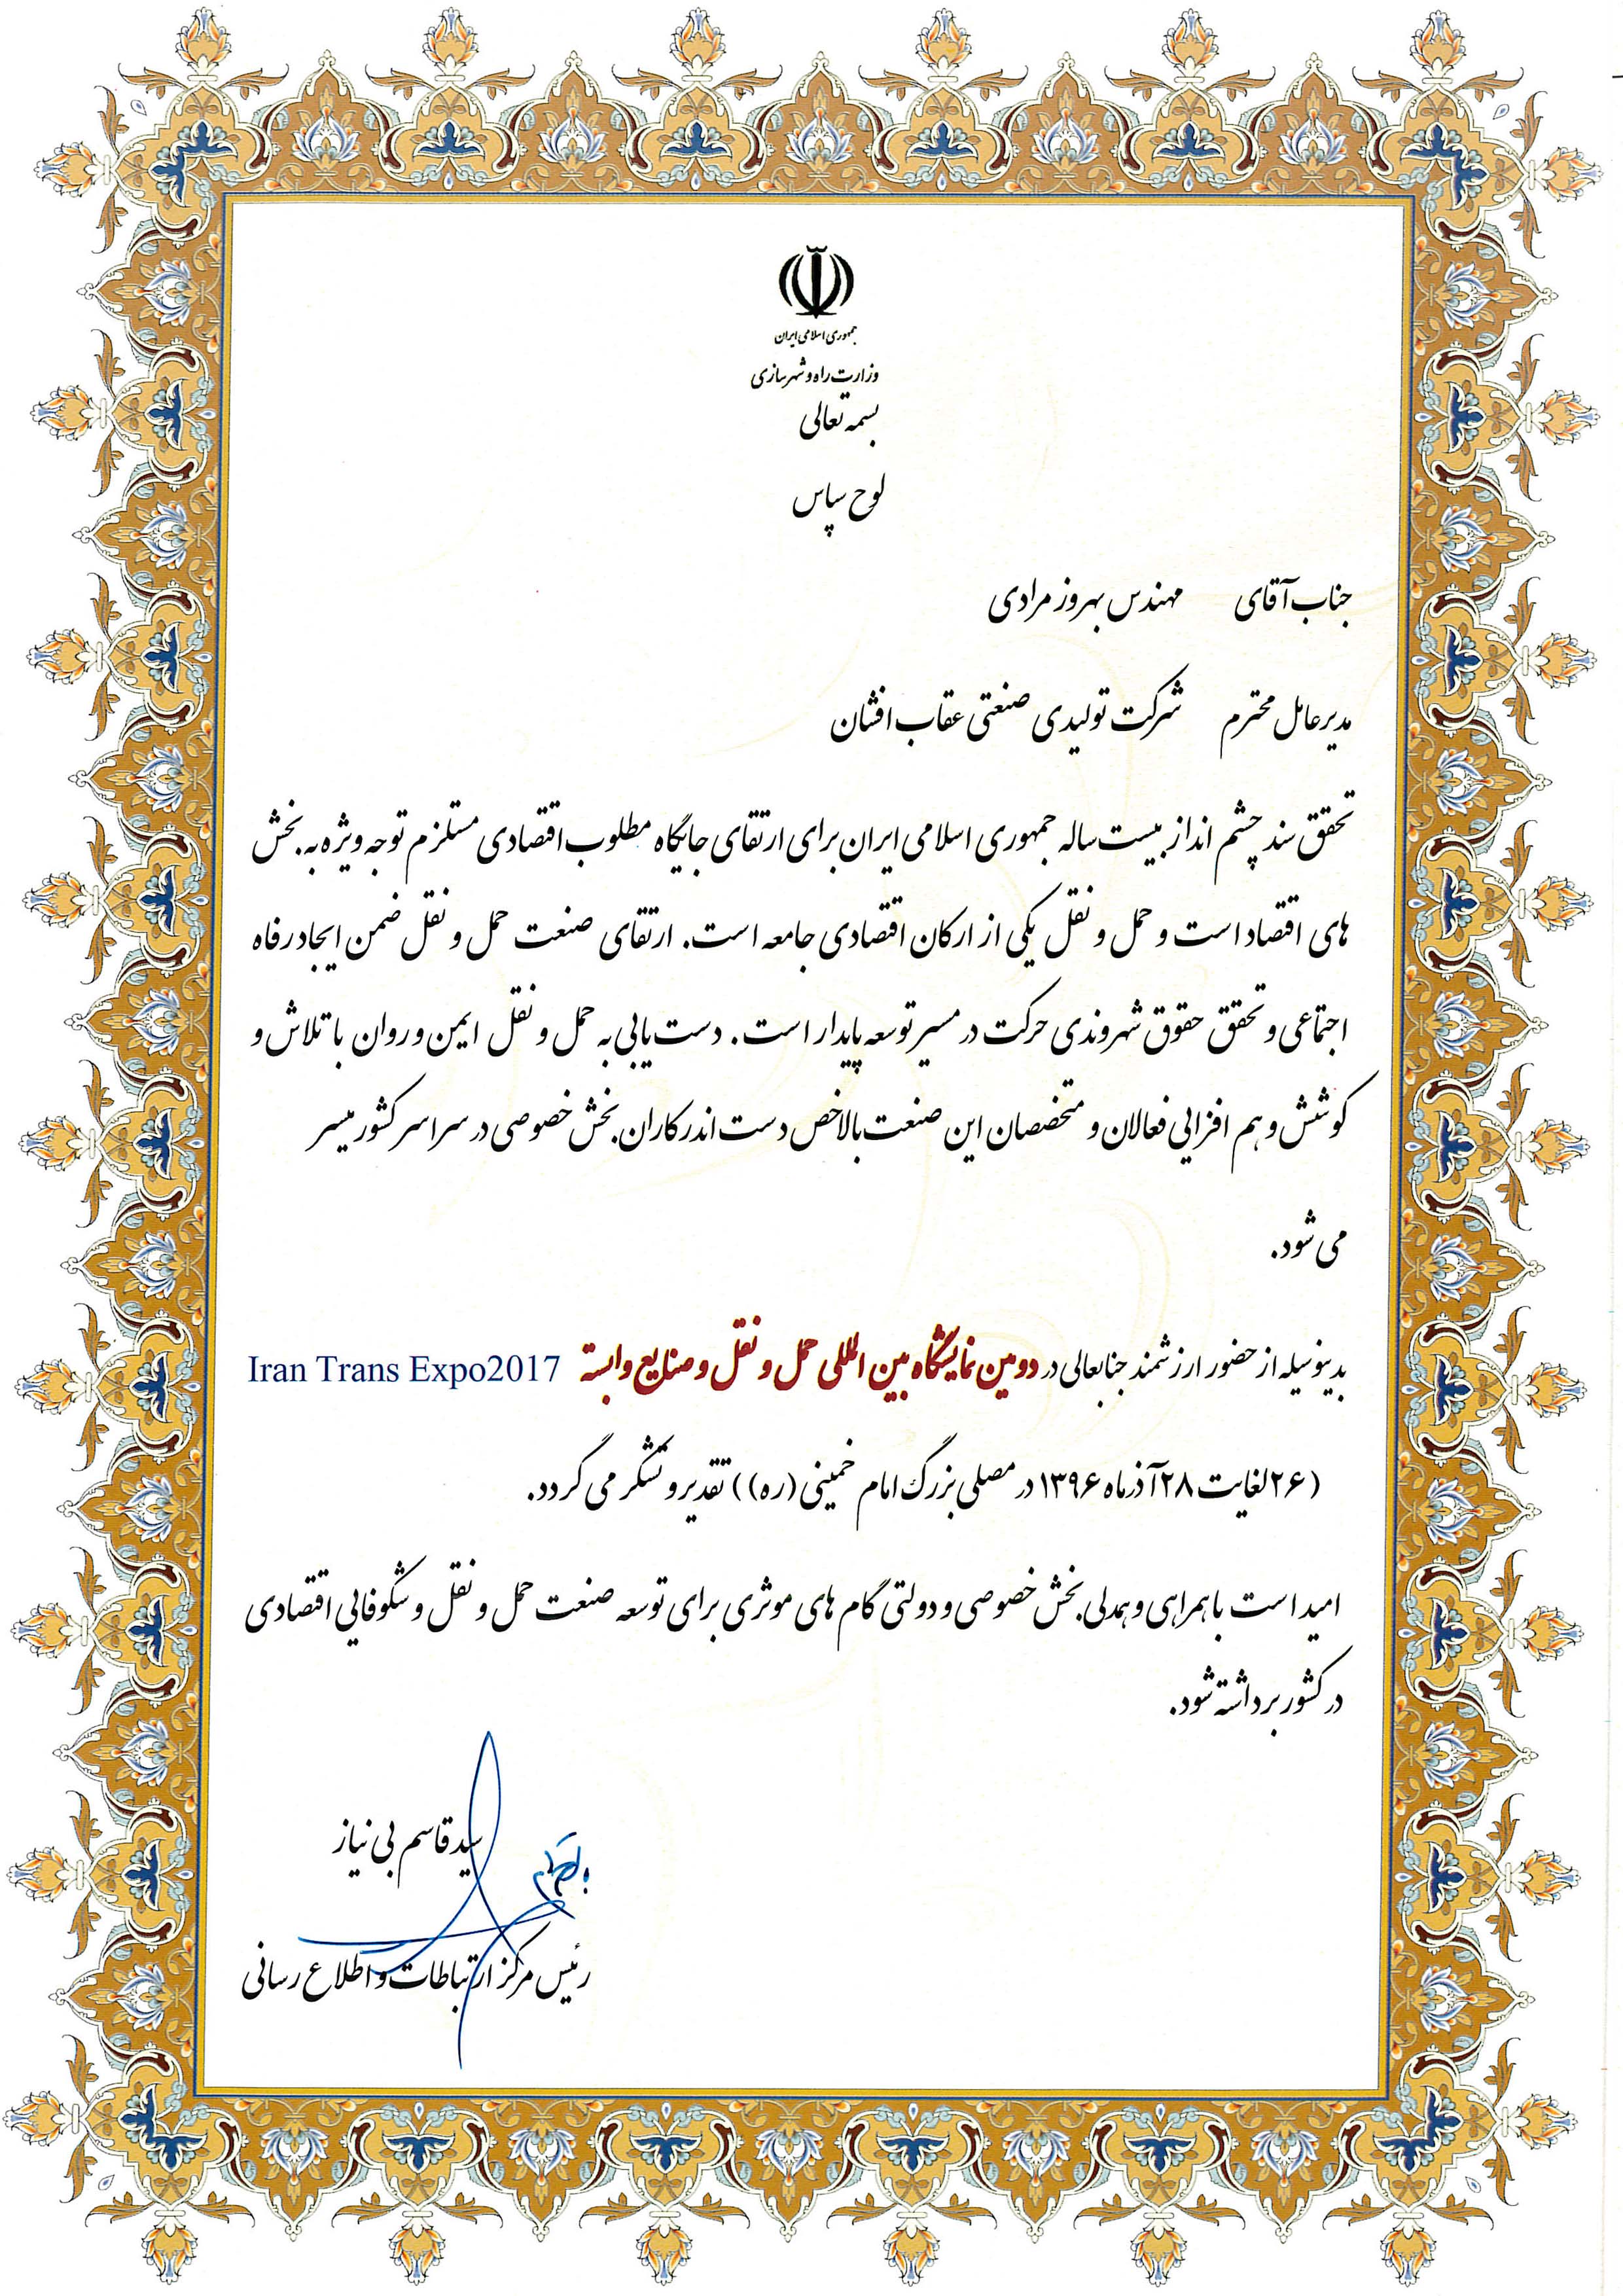 جمهوری اسلامی ایران
وزارت راه و شهرسازی
بسمه تعالی
لوح سپاس
جناب آقای مهندس بهروز مرادی
مدیرعامل محترم شرکت تولیدی صنعتی عقاب افشان
تحقق سند چشم انداز بیست ساله جمهوری اسلامی ایران برای ارتقای جایگاه مطلوب اقتصادی مستلزم توجه ویژه به بخش
های اقتصاد است و حمل و نقل یکی از ارکان اقتصادی جامعه است. ارتقای صنعت حمل و نقل ضمن ایجاد رفاه
اجتماعی و تحقق حقوق شهروندی حرکت در مسیر توسعه پایدار است. دست یابی به حمل و نقل ایمن و روان با تلاش و
کوشش و هم افزایی فعالان و متخصصان این صنعت بالاخص دست اندرکاران بخش خصوصی در سراسر کشور میسر
می شود.
بدینوسیله از حضور ارزشمند جنابعالی در دومین نمایشگاه بین المللی حمل و نقل و صنایع وابسته Iran Trans Expo2017
(۲۶ لغایت ۲۸ آذرماه ۱۳۹۶ در مصلی بزرگ امام خمینی (ره)) تقدیر و تشکر می گردد.
امید است با همراهی و همدلی بخش خصوصی و دولتی گام های موثری برای توسعه صنعت حمل و نقل و شکوفایی اقتصادی
در کشور برداشته شود.
سید قاسم بی نیاز
رئیس مرکز ارتباطات و اطلاع رسانی